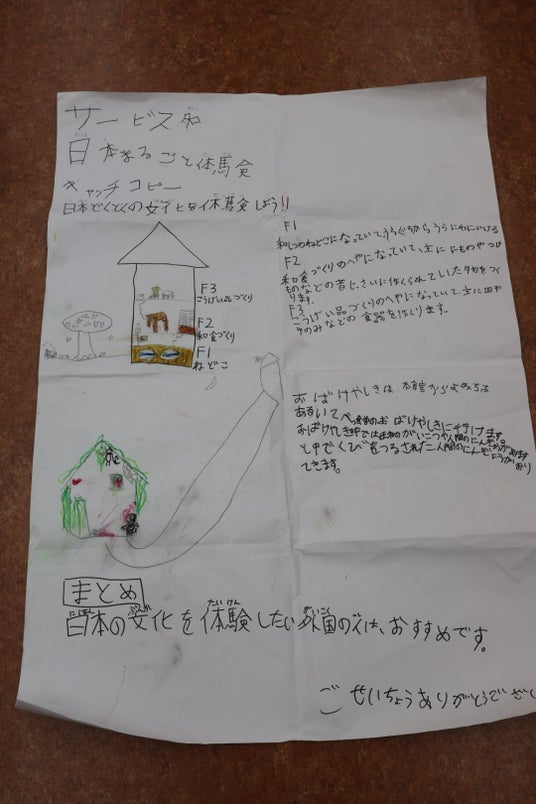 サービス名
日本まるごと体験
キャッチコピー
日本どくとくの文化を体験しよう!!
F1
和しつのねどこになっていて、うらぐちからうらにわにいける
F2
和食づくりのへやになっていて、主ににものやつけ
ものなどの昔
ります。
F3
こうげい品づくりのへやになっていて、主に皿や
ゆのみなどの食器を作ります。
F3
こうげい品づくり
F2
和食づくり
F1
ねどこ
おばけやしきは本館からよみち
あるいてべっ館のおばけやしきに行けます
おばけやしきの中では
と中でくびをつるされた
できます。
まとめ
日本の文化を体験したい外国の人は、おすすめです。
ごせいちょうありがとうござい